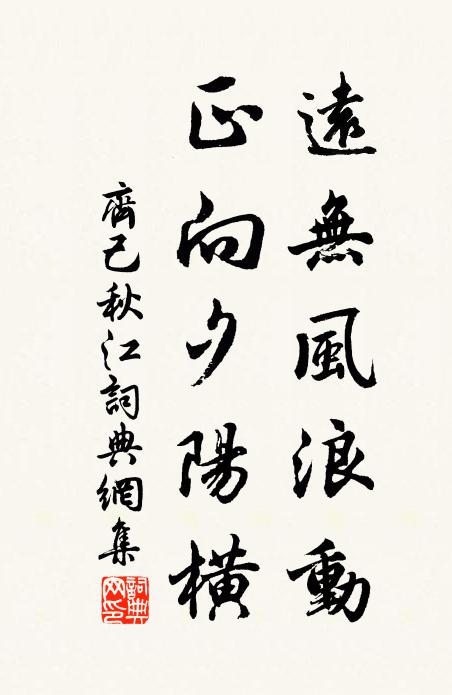 遠無風浪動
正向夕陽橫
齊己秋江詞典網集
詞典网印